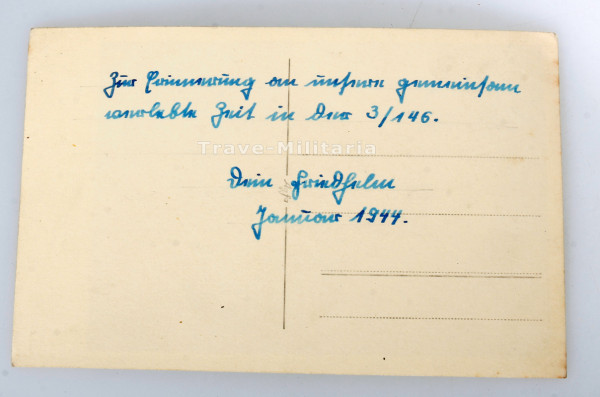 Zur Erinnerung an unsere gemeinsam
verlebte Zeit in der 3/146.
Trave-Militaria
Dein Friedhelm
Januar 1944.